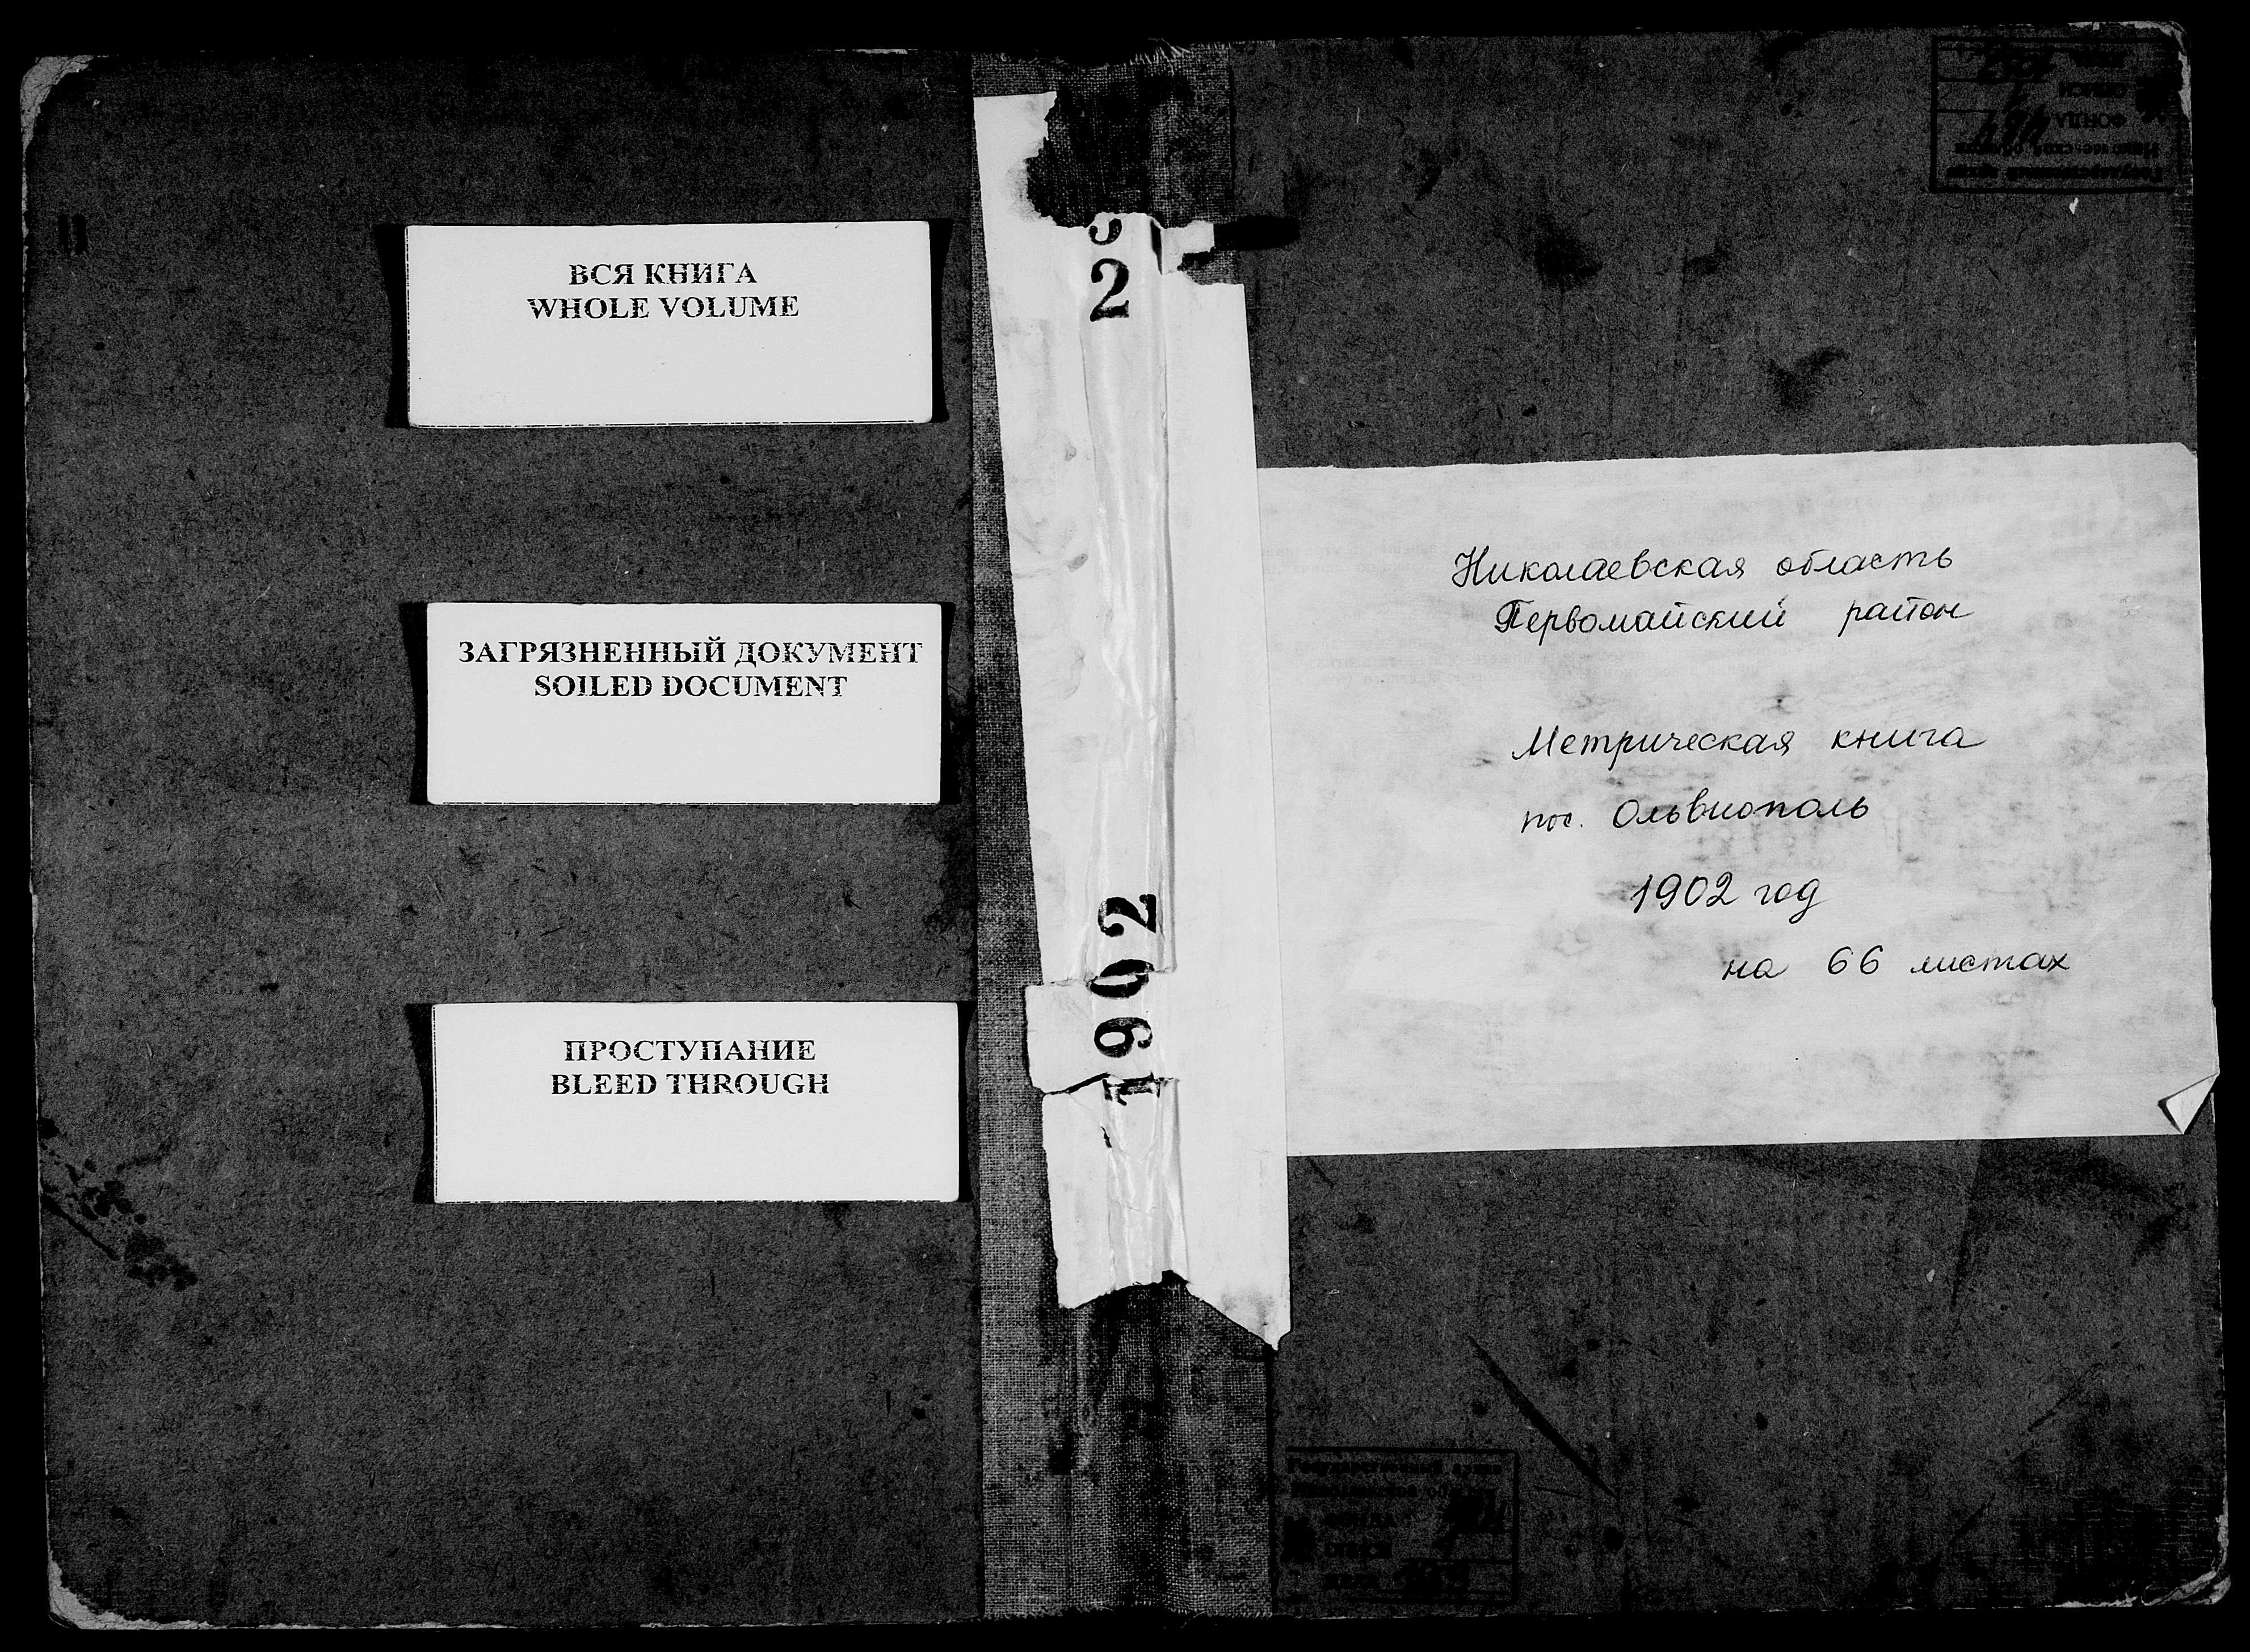 ВСЯ КНИГА
WHOLE VOLUME
ЗАГРЯЗНЕННЫЙ ДОКУМЕНТ
SOILED DOCUMENT
ПРОСТУПАНИЕ
BLEED THROUGH
2
1902
Николаевская область
Первомайский район
Метрическая книга
пос. Ольвиополь
1902 год
на 66 листах
Государственный архив
Николаевской области
ФОНДА
ОПИСИ